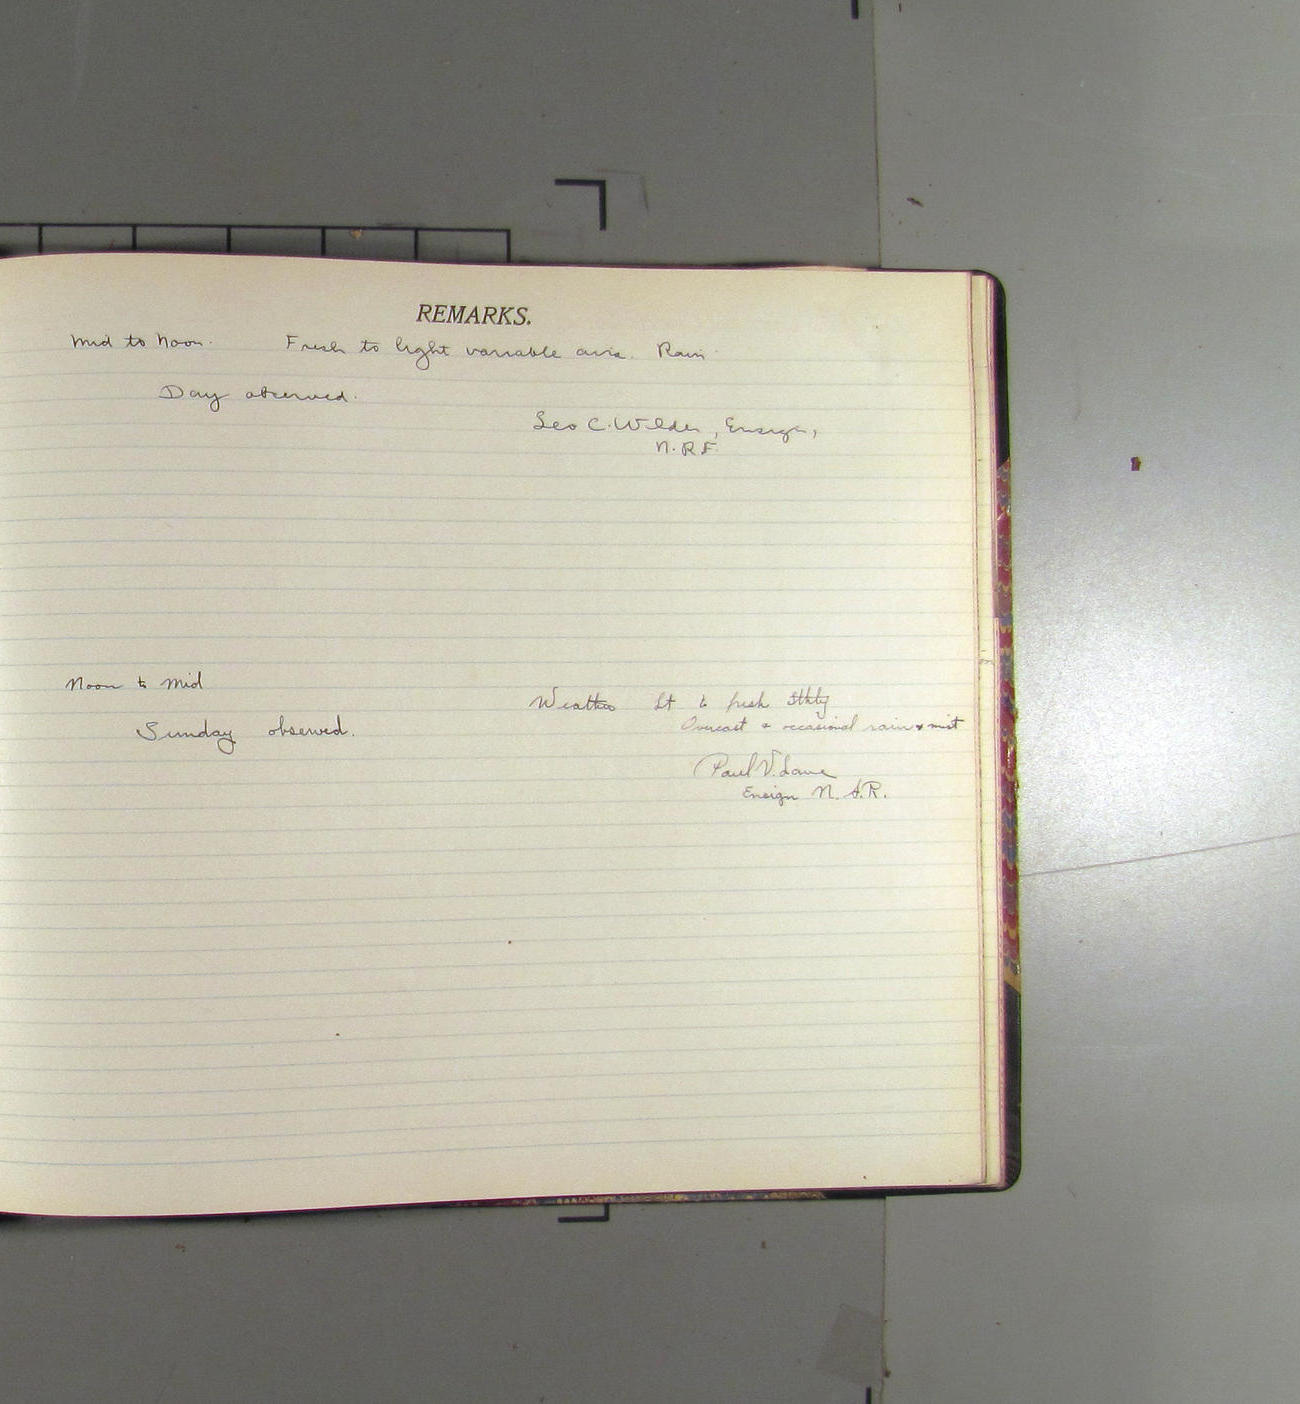 REMARKS.
Mid to Noon. Fresh to light variable airs. Rain.
Day observed.
Leo C. Wilder, Ensign,
N.R.F.
Noon to Mid
Weather Lt to fresh Sthly
Sunday observed.
Overcast & occasional rain & mist
Paul V. Lane
Ensign N. A.R.